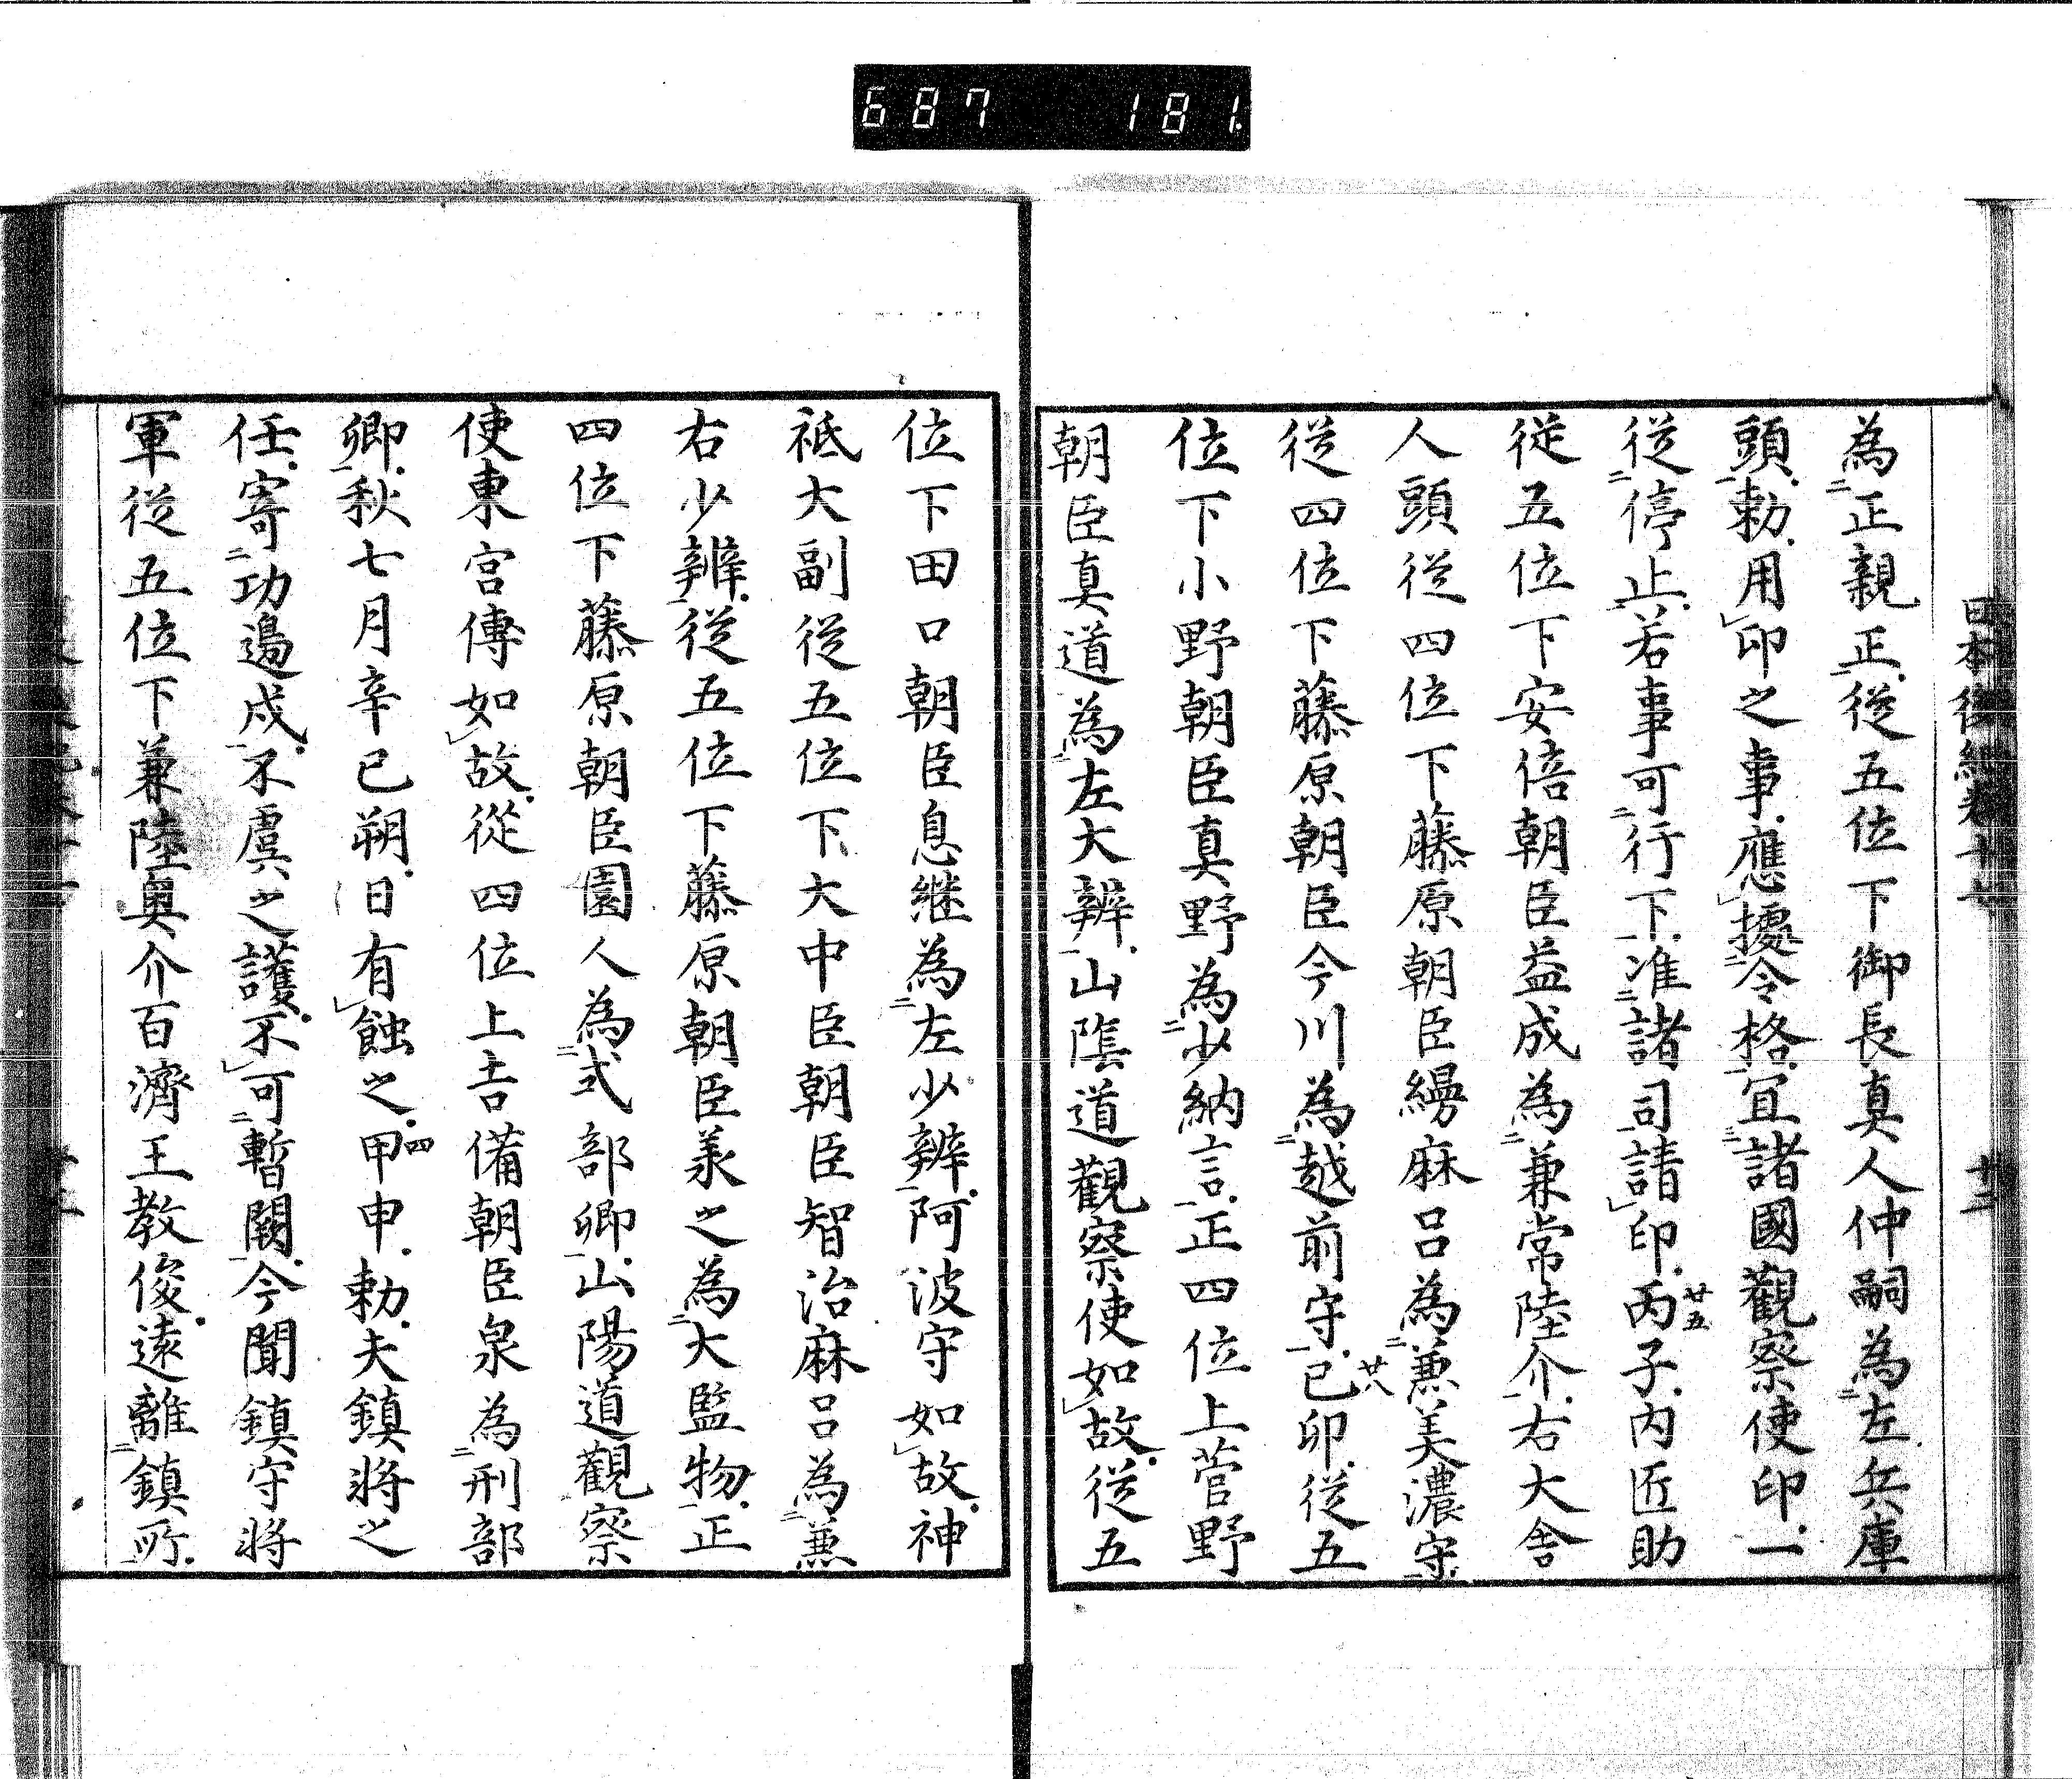 687 181.
日本後紀卷十七 十二
為正親正從五位下御長真人仲嗣為左兵庫
頭勅用印之事應據令格宜諸國觀察使印一
從停止若事可行下准諸司請印丙子内匠助
廿五
從五位下安倍朝臣益成為兼常陸介右大舎
人頭從四位下藤原朝臣縵麻呂為兼美濃守
從四位下藤原朝臣今川為越前守己卯從五
廿八
位下小野朝臣真野為少納言正四位上菅野
朝臣真道為左大辨山陰道觀察使如故從五
位下田口朝臣息継為左少辨阿波守如故神
祇大副從五位下大中臣朝臣智治麻呂為兼
右少辨從五位下藤原朝臣羕之為大監物正
四位下藤原朝臣園人為式部卿山陽道觀察
使東宮傅如故從四位上吉備朝臣泉為刑部
卿秋七月辛巳朔日有蝕之甲申勅夫鎮将之
四
任寄功邊戍不虞之護不可暫闕今聞鎮守将
軍從五位下兼陸奥介百濟王教俊遠離鎮所